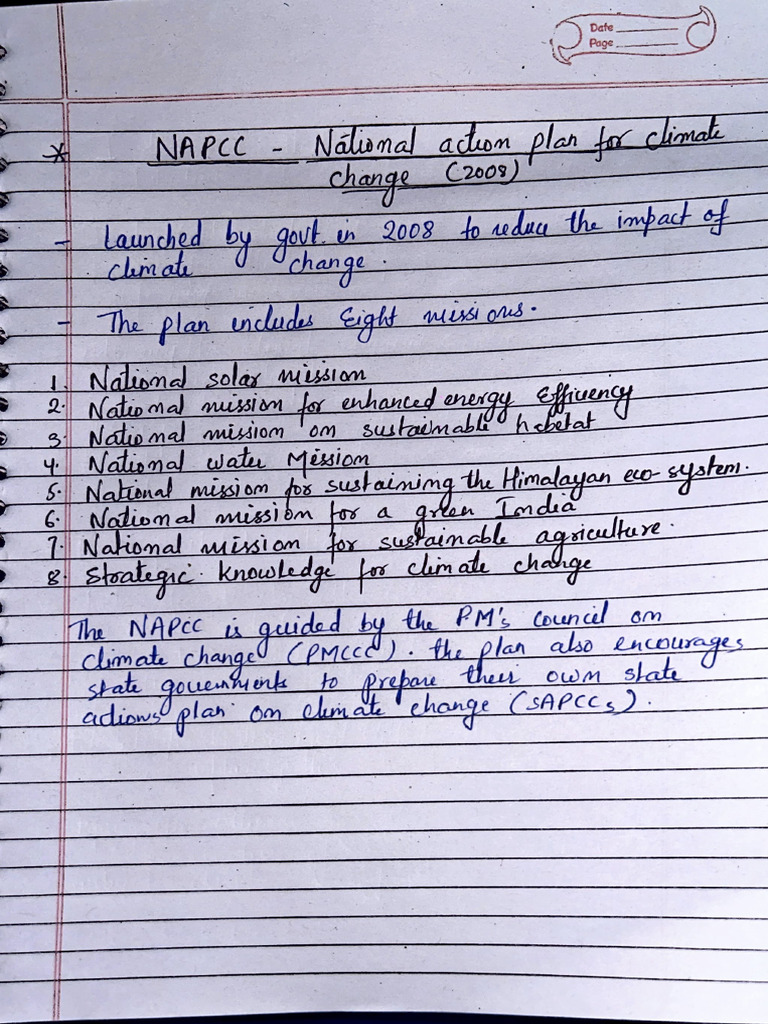 Date
Page
* NAPCC - National action plan for climate
change (2008)
- Launched by govt. in 2008 to reduce the impact of
climate change.
- The plan includes Eight missions.
1. National solar mission
2. National mission for enhanced energy Efficiency
3. National mission on sustainable habitat
4. National water Mission
5. National mission for sustaining the Himalayan eco-system.
6. National mission for a green India
7. National mission for sustainable agriculture.
8. Strategic knowledge for climate change
The NAPCC is guided by the PM's council on
climate change (PMCCC). the plan also encourages
state governments to prepare their own state
actions plan on climate change (SAPCCs).